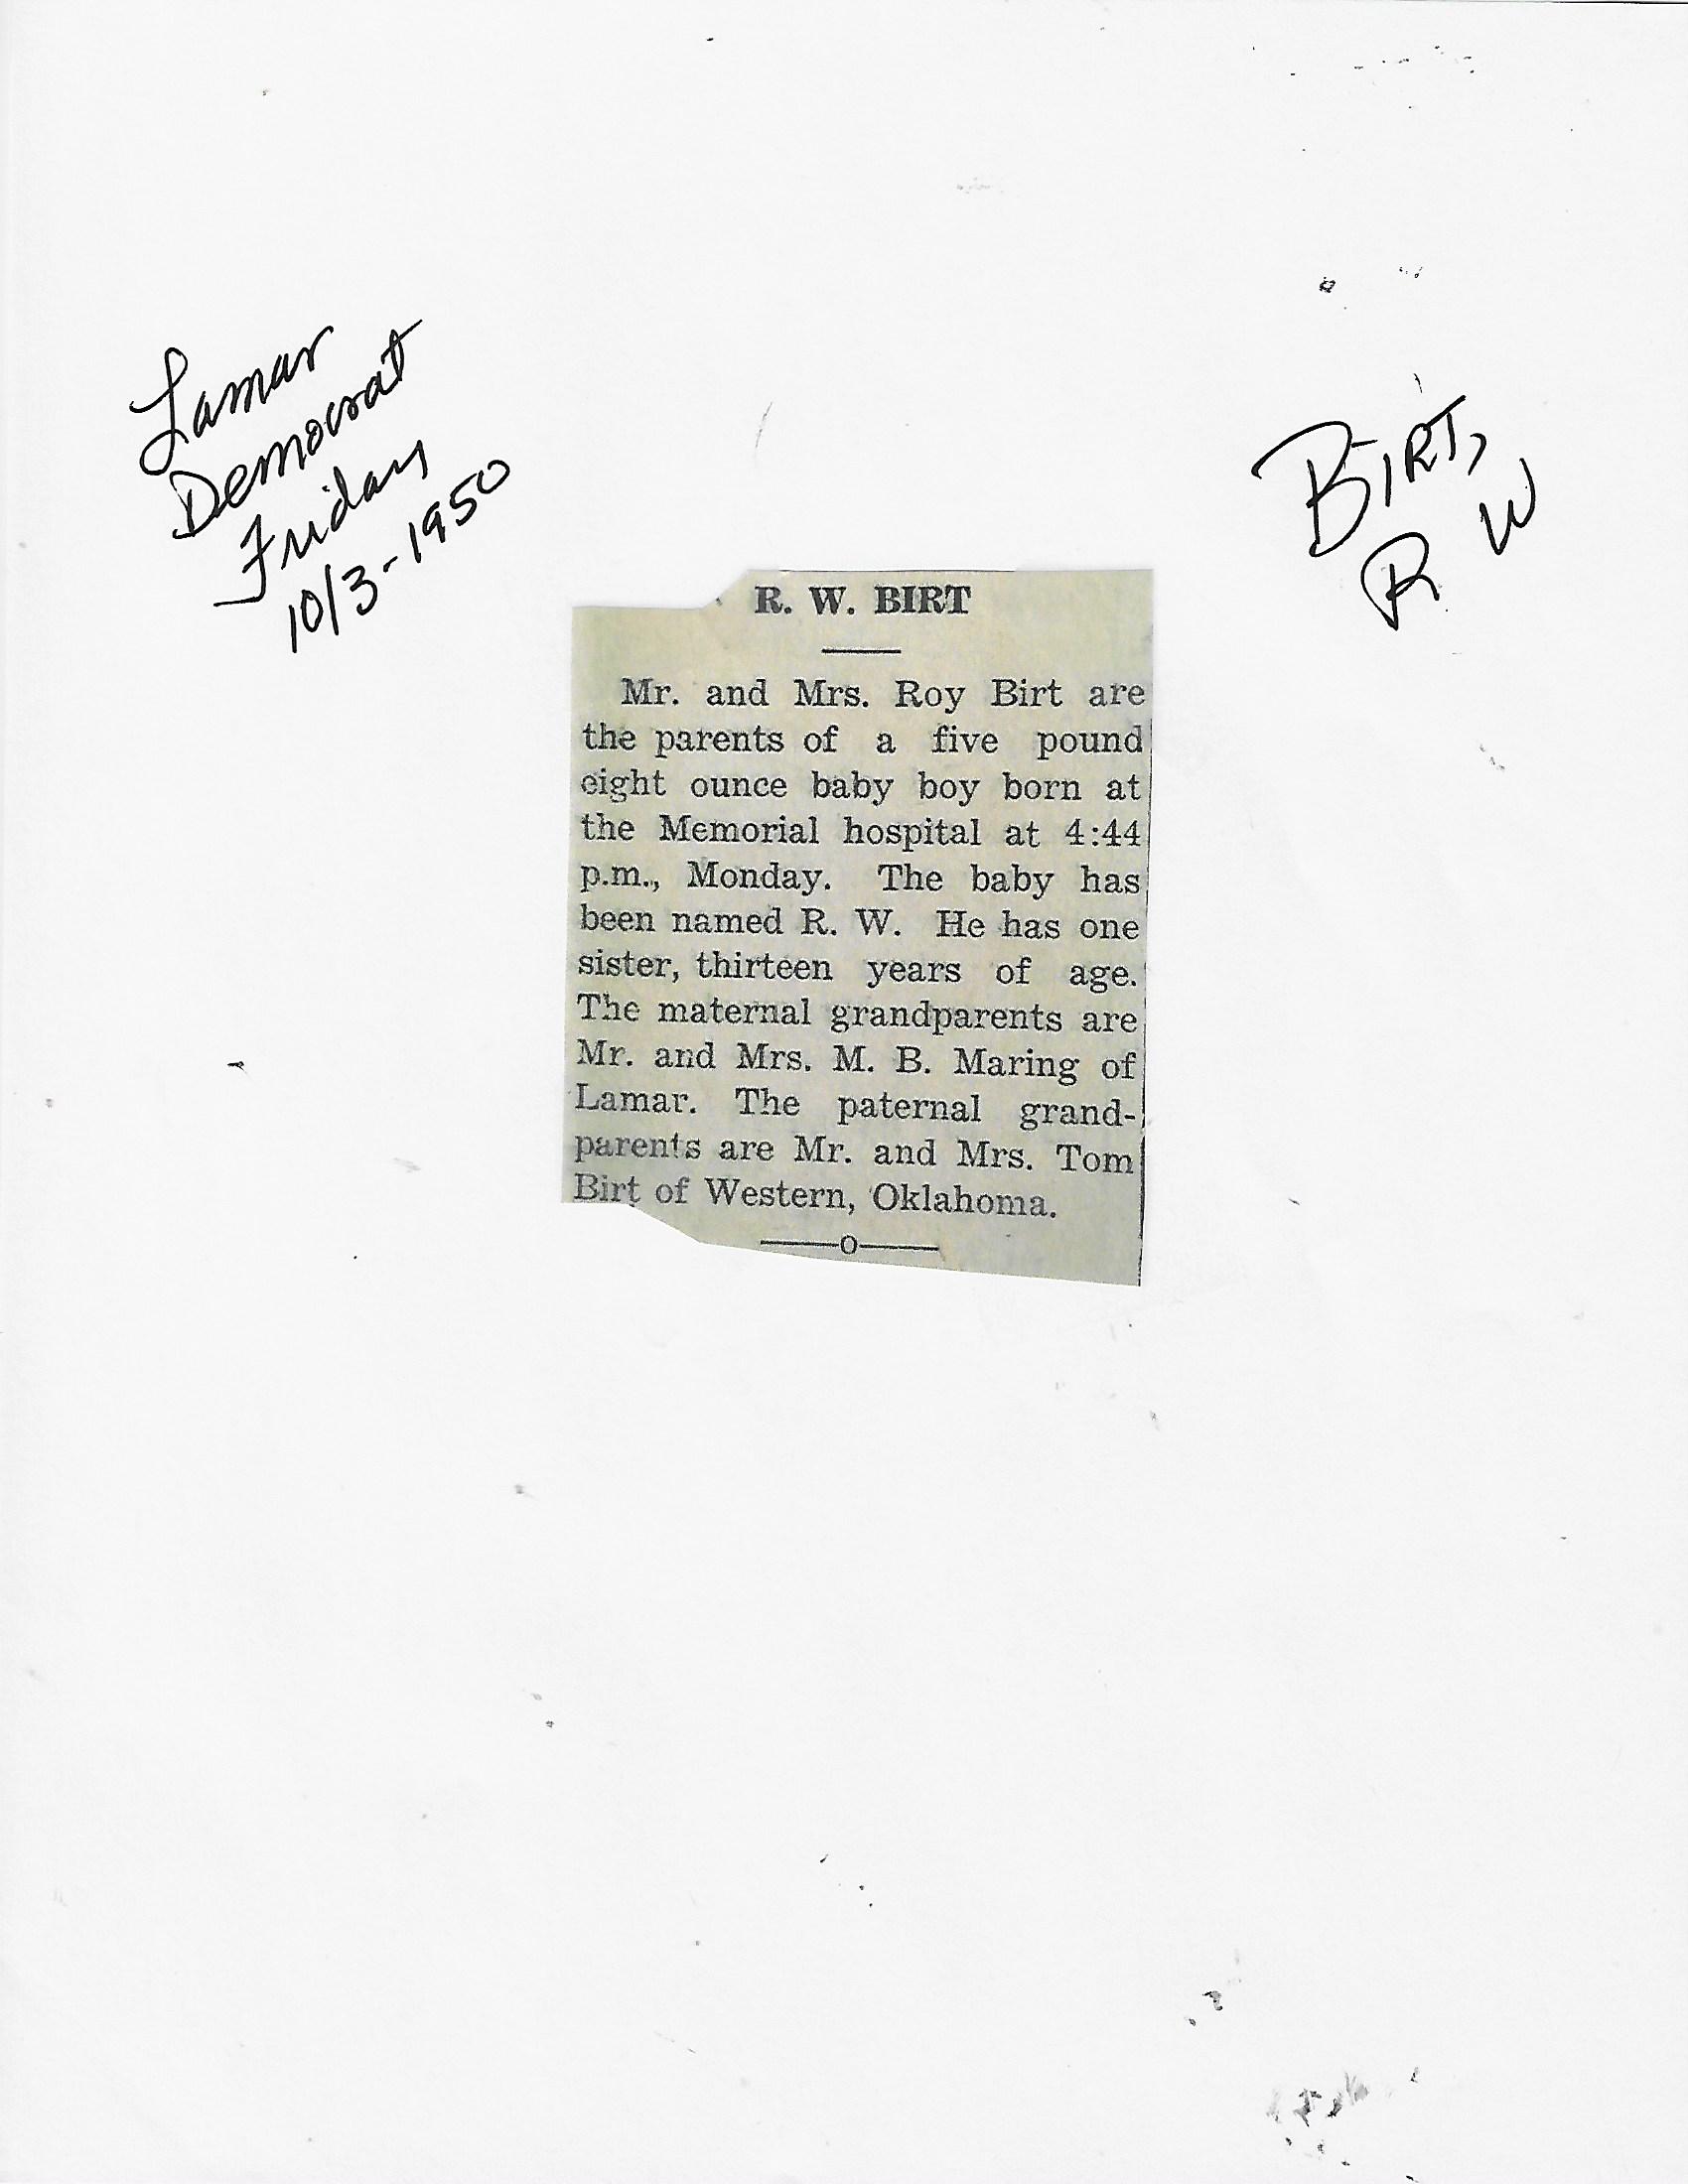 Lamar
Democrat
Friday
10/3-1950
BIRT,
R W
R. W. BIRT
Mr. and Mrs. Roy Birt are
the parents of a five pound
eight ounce baby boy born at
the Memorial hospital at 4:44
p.m., Monday. The baby has
been named R. W. He has one
sister, thirteen years of age.
The maternal grandparents are
Mr. and Mrs. M. B. Maring of
Lamar. The paternal grand-
parents are Mr. and Mrs. Tom
Birt of Western, Oklahoma.
——o——